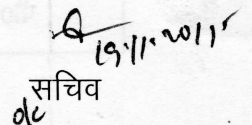 19.11.2011
सचिव
o/c